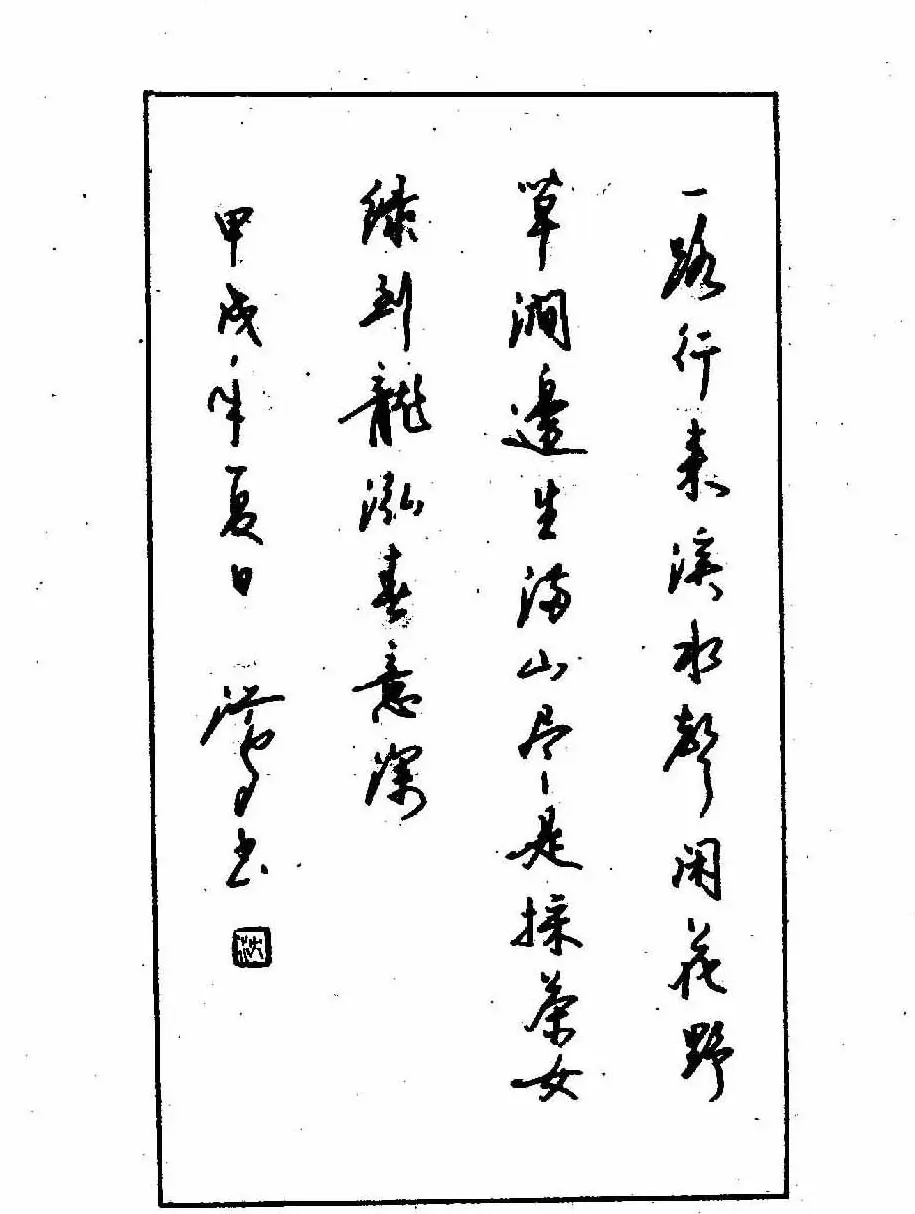 一路行来溪水声闲花野
草澗邊生满山尽是採茶女
绿到龍泓春意深
甲戌年夏日 書
沈